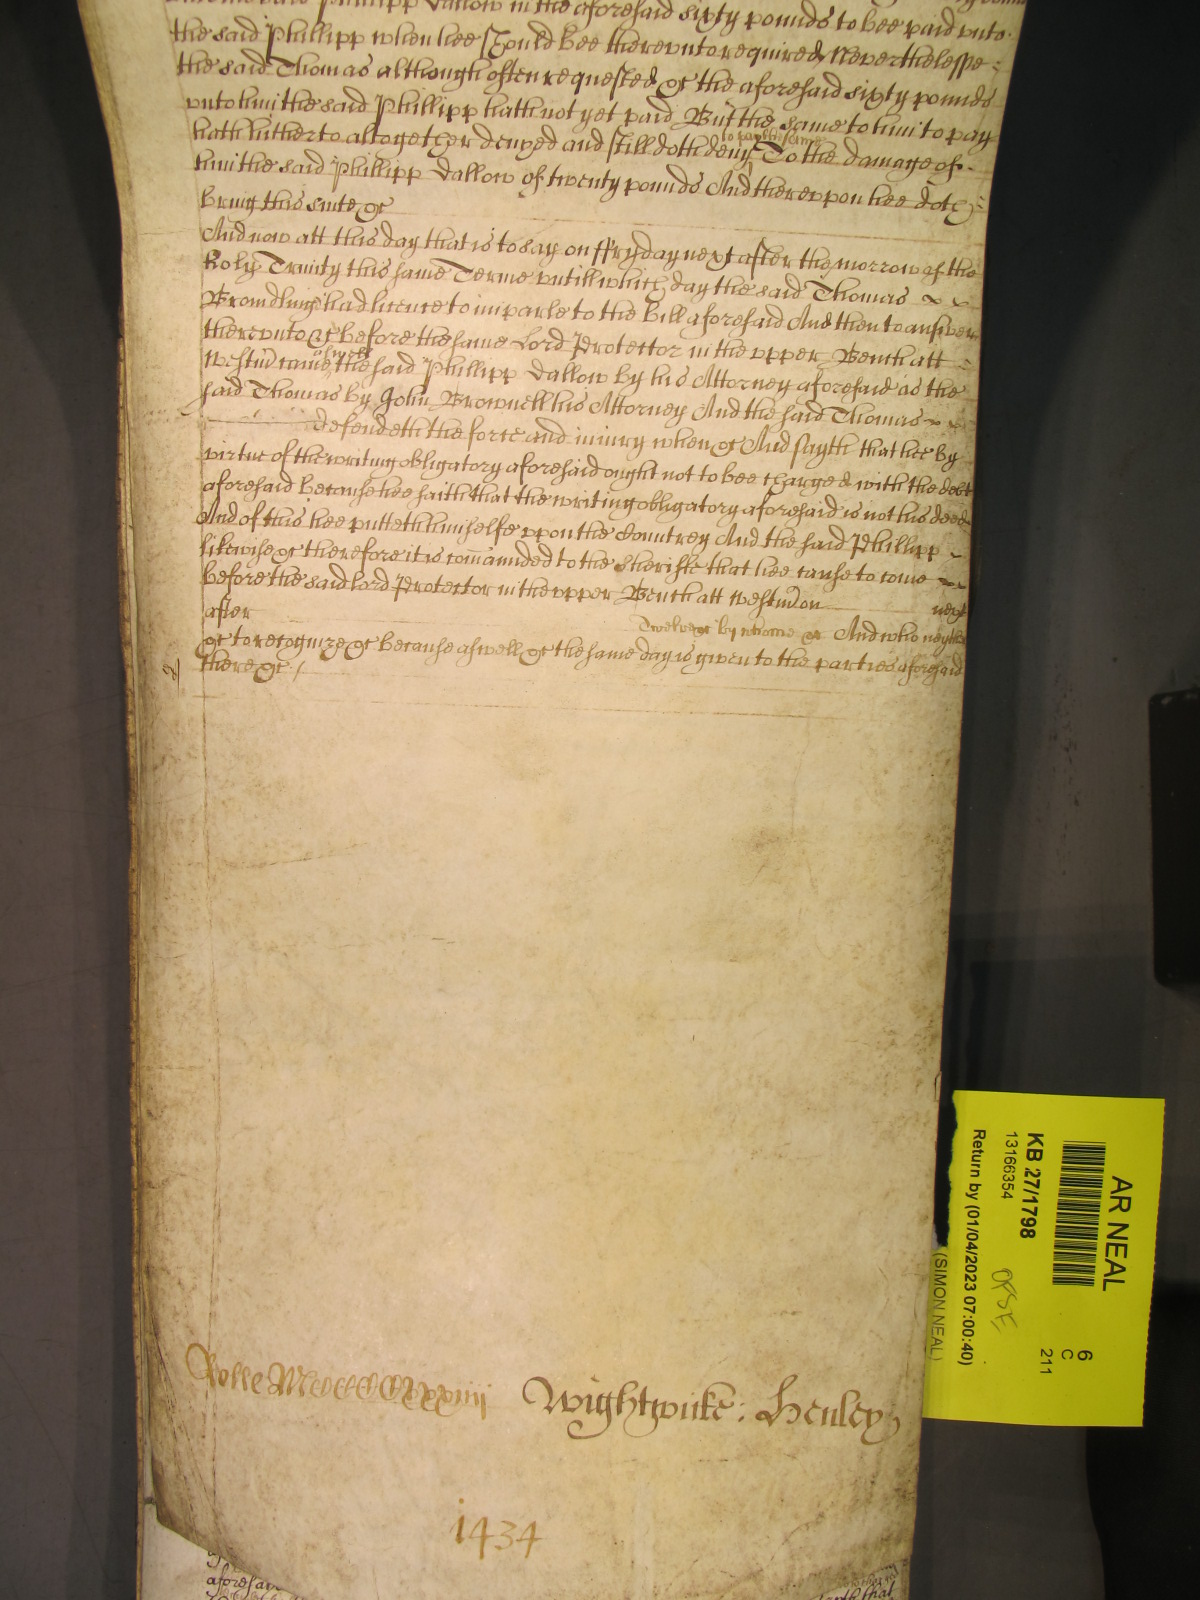 the said Phillipp Dallow in the aforesaid sixty pounds to bee paid unto
the said Phillipp when hee should bee thereunto required Neverthelesse
the said Thomas although often requested &c the aforesaid sixty pounds
unto him the said Phillipp hath not yet paid But the same to him to pay
hath hitherto altogether denyed and still doth deny to pay the same To the damage of
him the said Phillipp Dallow of twenty pounds And thereuppon hee doth
bring this suite &c
And now att this day that is to say on ffryday next after the morrow of the
holy Trinity this same Terme untill which day the said Thomas
had licence to imparle to the bill aforesaid And then to answer
thereunto &c before the same Lord Protector in the upper Bench att
aswell the said Phillipp Dallow by his Attorney aforesaid as the
said Thomas by John Brownell his Attorney And the said Thomas
defendeth the force and iniury when &c And sayth that hee by
virtue of the writing obligatory aforesaid ought not to bee charged with the debt
aforesaid because hee saith that the writing obligatory aforesaid is not his deed
And of this hee putteth himselfe uppon the Countrey And the said Phillipp
likewise &c therefore it is comanded to the Sheriffe that hee cause to come
before the said Lord Protector in the upper Bench att Westm̃ on next
after Twelve &c by whome &c And who neyther
&c to recognize &c because aswell &c the same day is given to the parties aforesaid
there &c
Rolle MCCCCXXXiiii Wightwicke: Henley
1434
aforesaid
that
AR NEAL
KB 27/1798
13166354
Return by (01/04/2023 07:00:40)
(SIMON NEAL)
6
C
211